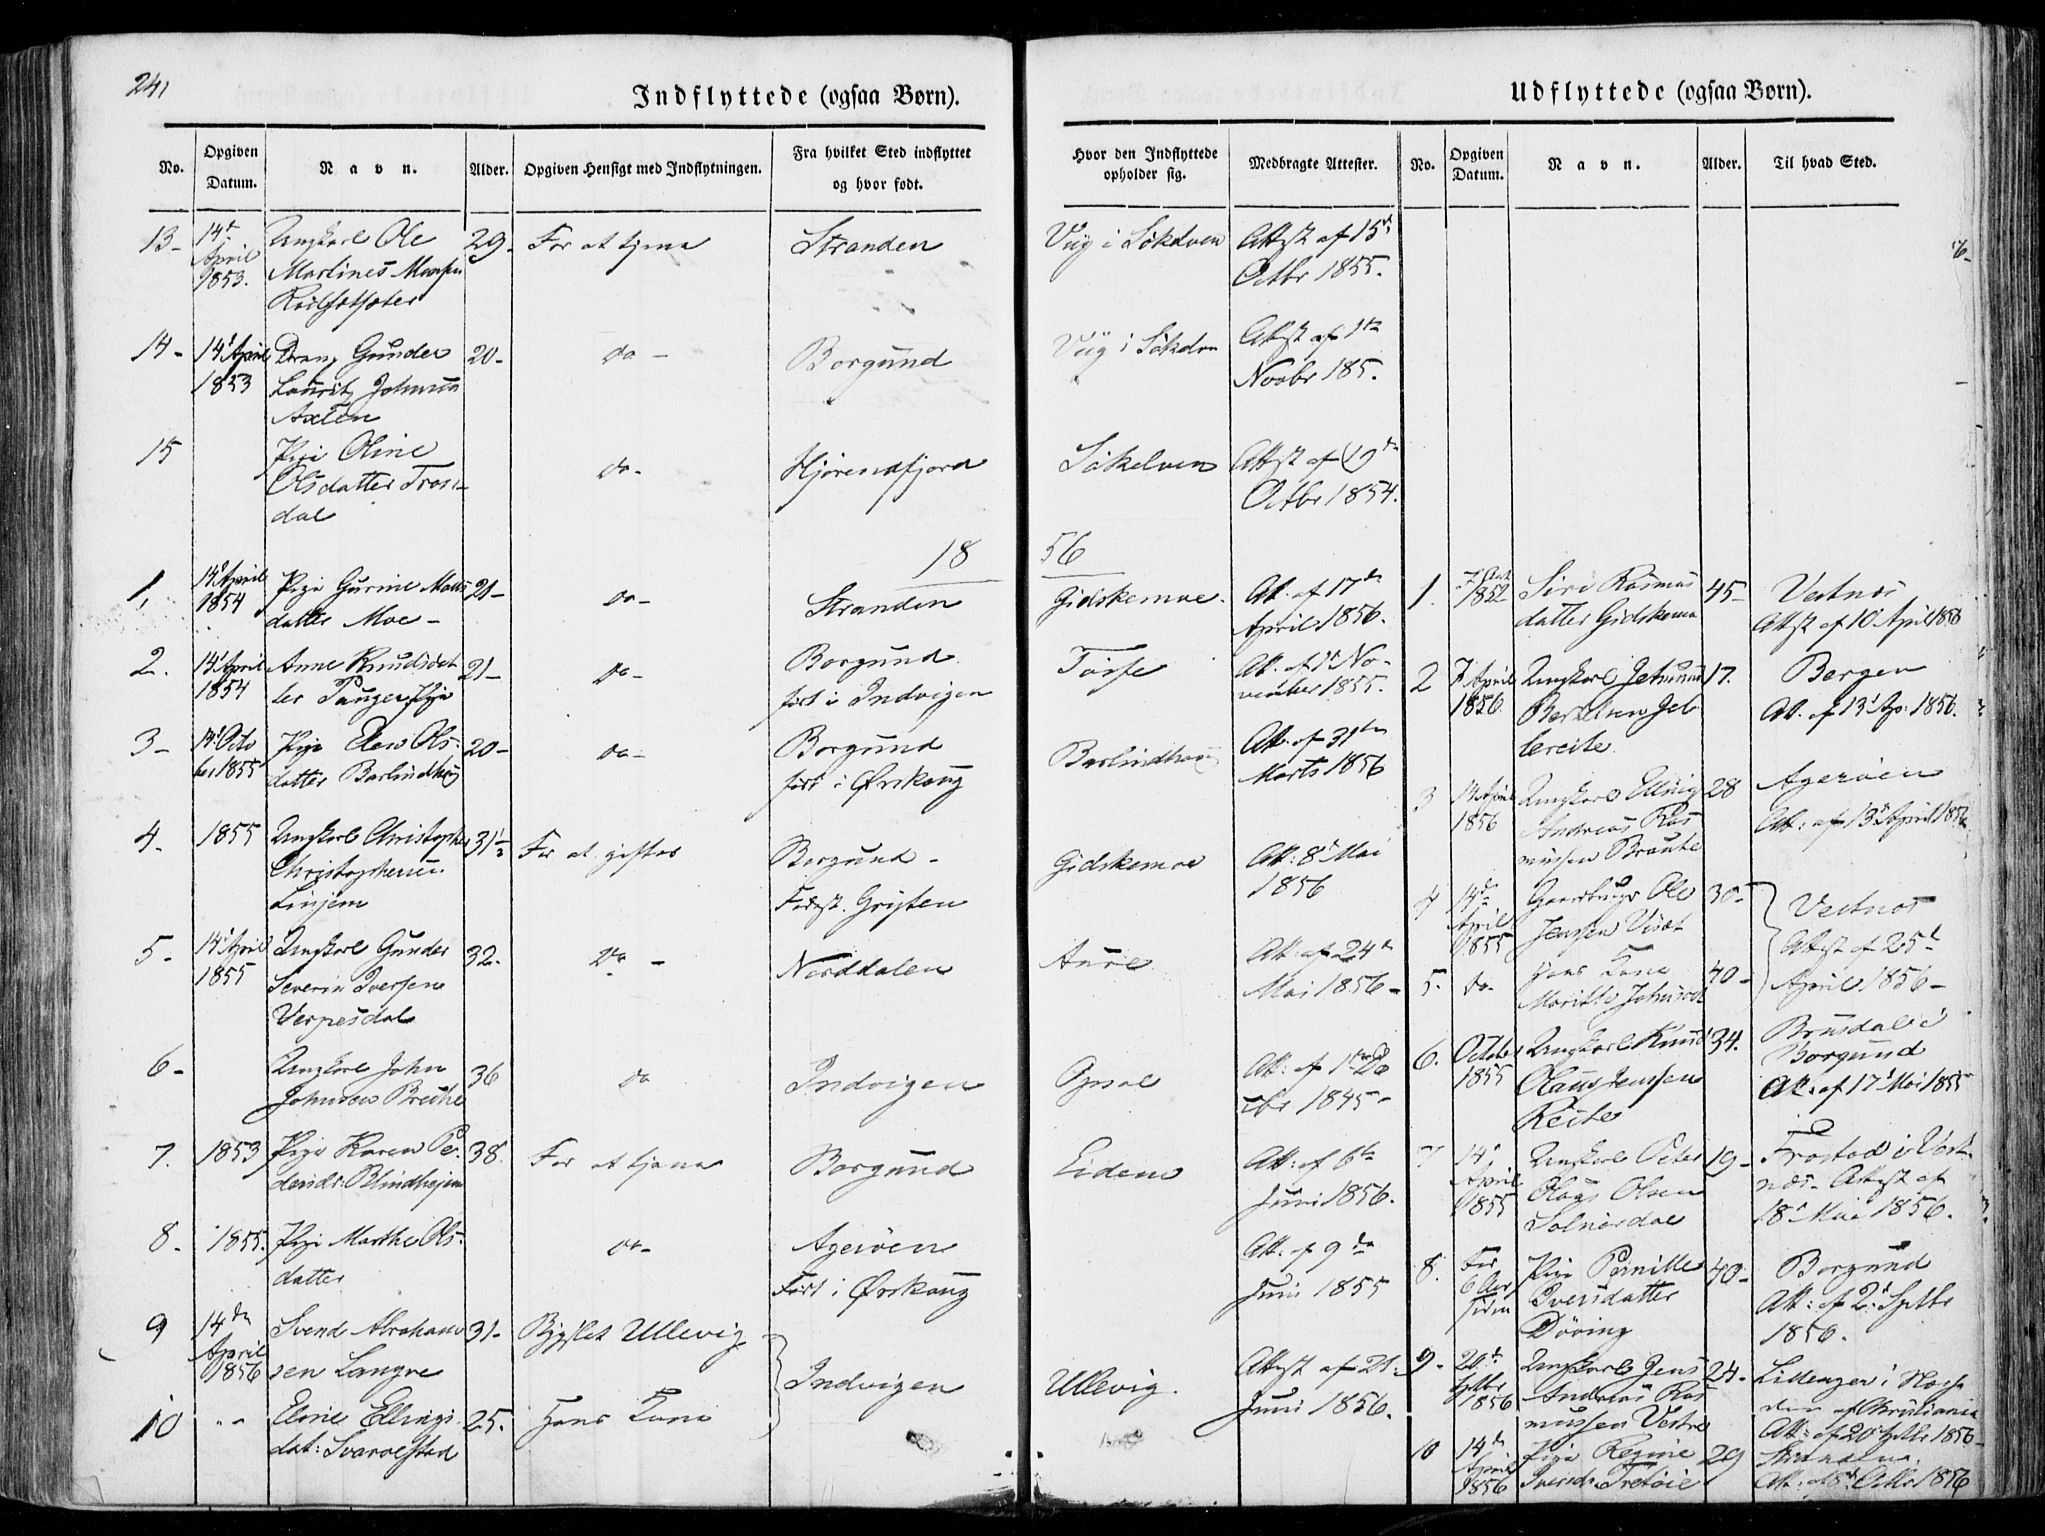 241
Indflyttede (ogsaa Børn).
No.
Opgiven
Datum.
Navn.
Alder.
Opgiven Hensigt med Indflytningen.
Fra hvilket Sted indflyttet
og hvor født.
13-
14de
April
1853.
Ungkarl Ole
Martines
29-
For at tjene
Stranden
14-
14de April
1853
Dreng Gunder
Lauritz Johnsen
20-
do-
Borgund
15
Pige Oline
Olsdatter
dal
do-
Hjörendfjord
18
1,
14de April
1854
Pige Gurine Mads
datter Moe-
21-
do-
Stranden
2.
14de April
1854
Anne Knudsdat
ter Pige
21-
do-
Borgund
født i Indvigen
3-
14de Octo
ber 1855
Pige Elen Ols-
datter Barlindhoug
20-
do-
Borgund
født i Ørskoug
4-
1855
Ungkarl Christopher
Christophersen
31½
For at giftes
Borgund-
5-
14de April
1855
Ungkarl Gunder
Severin Iversen
Verpesdal
32.
Do-
Norddalen
6-
Ungkarl John
Johnsen
36
do
Indvigen
7.
1853
Pige Karen Pe-
dersdr. Blindhejm
38.
For at tjene
Borgund
8-
1855.
Pige Marthe Ols-
datter
do-
Ageröen
Født i Ørskoug
9
14de
April
1856
Svend Abraham
sen Langve
31-
Bygslet Ullevig
Indvigen
10
Eline Ellings
dat:
25.
Hans Kone
Udflyttede (ogsaa Børn).
Hvor den Indflyttede
opholder sig.
Medbragte Attester.
No.
Opgiven
Datum.
Navn.
Alder.
Til hvad Sted.
Viig i Sökelven
Attest af 15de
Octbr 1855.
Viig i Sökelven
Attest af 1ste
Novbr 185.
Sökelven
Attest af 19de
Octbr 1854.
56
Gidskemoe.
Att. af 17de
April 1856.
Att. af 1ste No-
vember 1855.
Barlindhoug
Att. af 31te
Marts 1856
Gidskemoe
Att: 8de Mai
1856
Aure
Att. af 24de
Mai 1856-
Att: af 1ste De
cbr. 1845-
Eidem
Att: af 6te
Juni 1856.
Att. af 9de
Juni 1855
Ullevig.
Attest af 21.
Juni 1856.
1.
1852
Siri Rasmus
datter Gidskemoe
45-
Vestnes
Attest af 10de April 1856
2
7de April
1856.
Ungkarl Johannes
17.
Bergen
Att. af 13de Ap: 1856.
3
14 April
1856
Ungkarl Elling
Andreas Ras
mussen Braute
28
Ageröen
Att: af 13de April 1856.
4
14de
April
1855
Gaardbruger Ole
Jensen
30-
Vestnes
Attest af 25de
April 1856-
5.
do-
Hans Kone
Marithe Johnsdt
40-
6.
October
1855
Ungkarl Knud
Olaus Jenssen
Reite
34.
Brusdal i
Borgund
Att. af 17de Mai 1855
7
14de
April
1855
Ungkarl Peter
Olaus Olsen
Solnørdal
19-
Frostad i Vest-
nes- Attest af
18de Mai 1856.
8.
For
6 Aar
siden
Pige Pernille
Iversdatter
Döving
40-
Borgund
Att: af 2de Septbr
1856.
9-
20de
Septbr
1856
Ungkarl Jens
Andreas Ras
mussen Vestre
24-
Att: af 20de Septbr 1856-
10
14de
April
1856
Pige Regine
29
Att: af 8de Octbr 1856